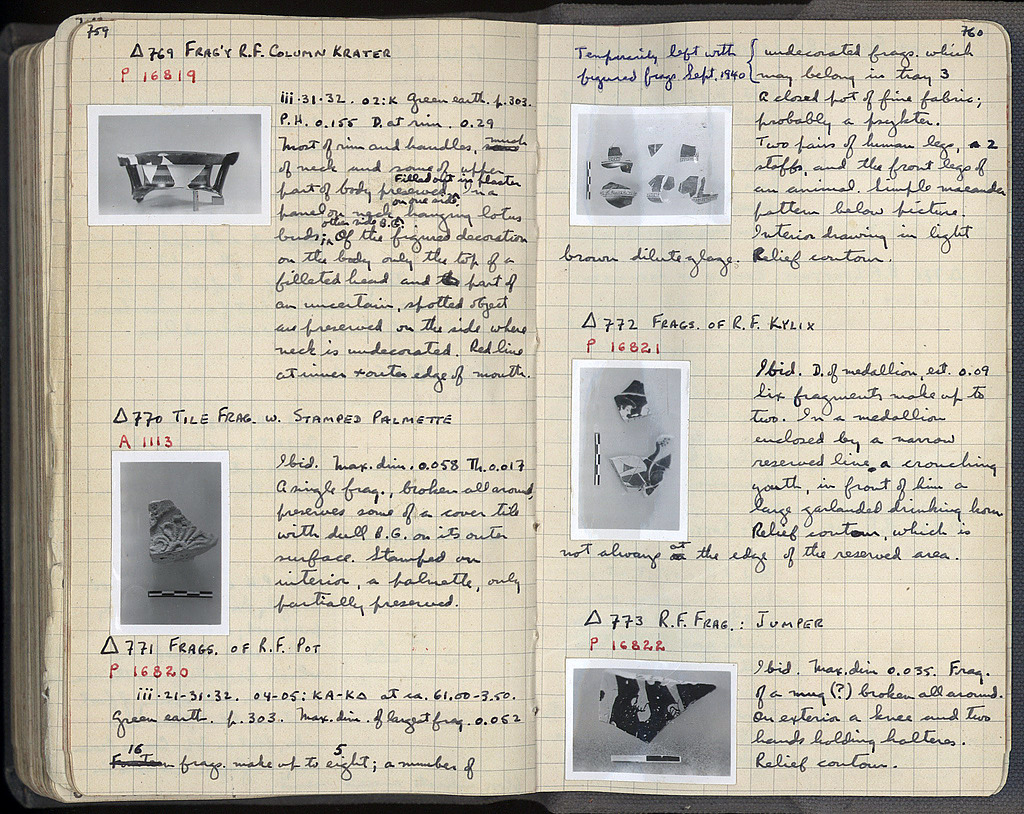 759
Δ 769 FRAG'Y R.F. COLUMN KRATER
P 16819
iii·31·32. 02:K Green earth. p. 303.
P.H. 0.155 D. at rim. 0.29
Most of rim and handles, much
of neck and some of upper
part of body preserved. Filled out in plaster
In a
panel on neck on one side, hanging lotus
buds; other side B.G.
Of the figured decoration
on the body only the top of a
filleted head and part of
an uncertain, spotted object
are preserved on the side where
neck is undecorated. Red line
at inner + outer edge of mouth.
Δ 770 TILE FRAG. W. STAMPED PALMETTE
A 1113
Ibid. Max. dim. 0.058 Th. 0.017
A single frag., broken all around,
preserves some of a cover tile
with dull B.G. on its outer
surface. Stamped on
interior, a palmette, only
partially preserved.
Δ 771 FRAGS. OF R.F. POT
P 16820
iii-21-31-32. 04-05: KA-KΔ at ca. 61.00-3.50.
Green earth. p. 303. Max. dim. of largest frag. 0.052
16 5
Fourteen frags. make up to eight; a number of
760
Temporarily left with
figured frags. Sept. 1940
{ undecorated frags. which
may belong in tray 3
A closed pot of fine fabric;
probably a psykter.
Two pairs of human legs, 2
staffs, and the front legs of
an animal. Simple maeander
pattern below picture.
Interior drawing in light
brown dilute glaze. Relief contour.
Δ 772 FRAGS. OF R.F. KYLIX
P 16821
Ibid. D. of medallion, est. 0.09
Six fragments make up to
two. In a medallion
enclosed by a narrow
reserved line, a crouching
youth, in front of him a
large garlanded drinking horn
Relief contour, which is
not always at the edge of the reserved area.
Δ 773 R.F. FRAG.: JUMPER
P 16822
Ibid. Max. dim 0.035. Frag.
of a mug (?) broken all around.
On exterior a knee and two
hands holding halteres.
Relief contour.